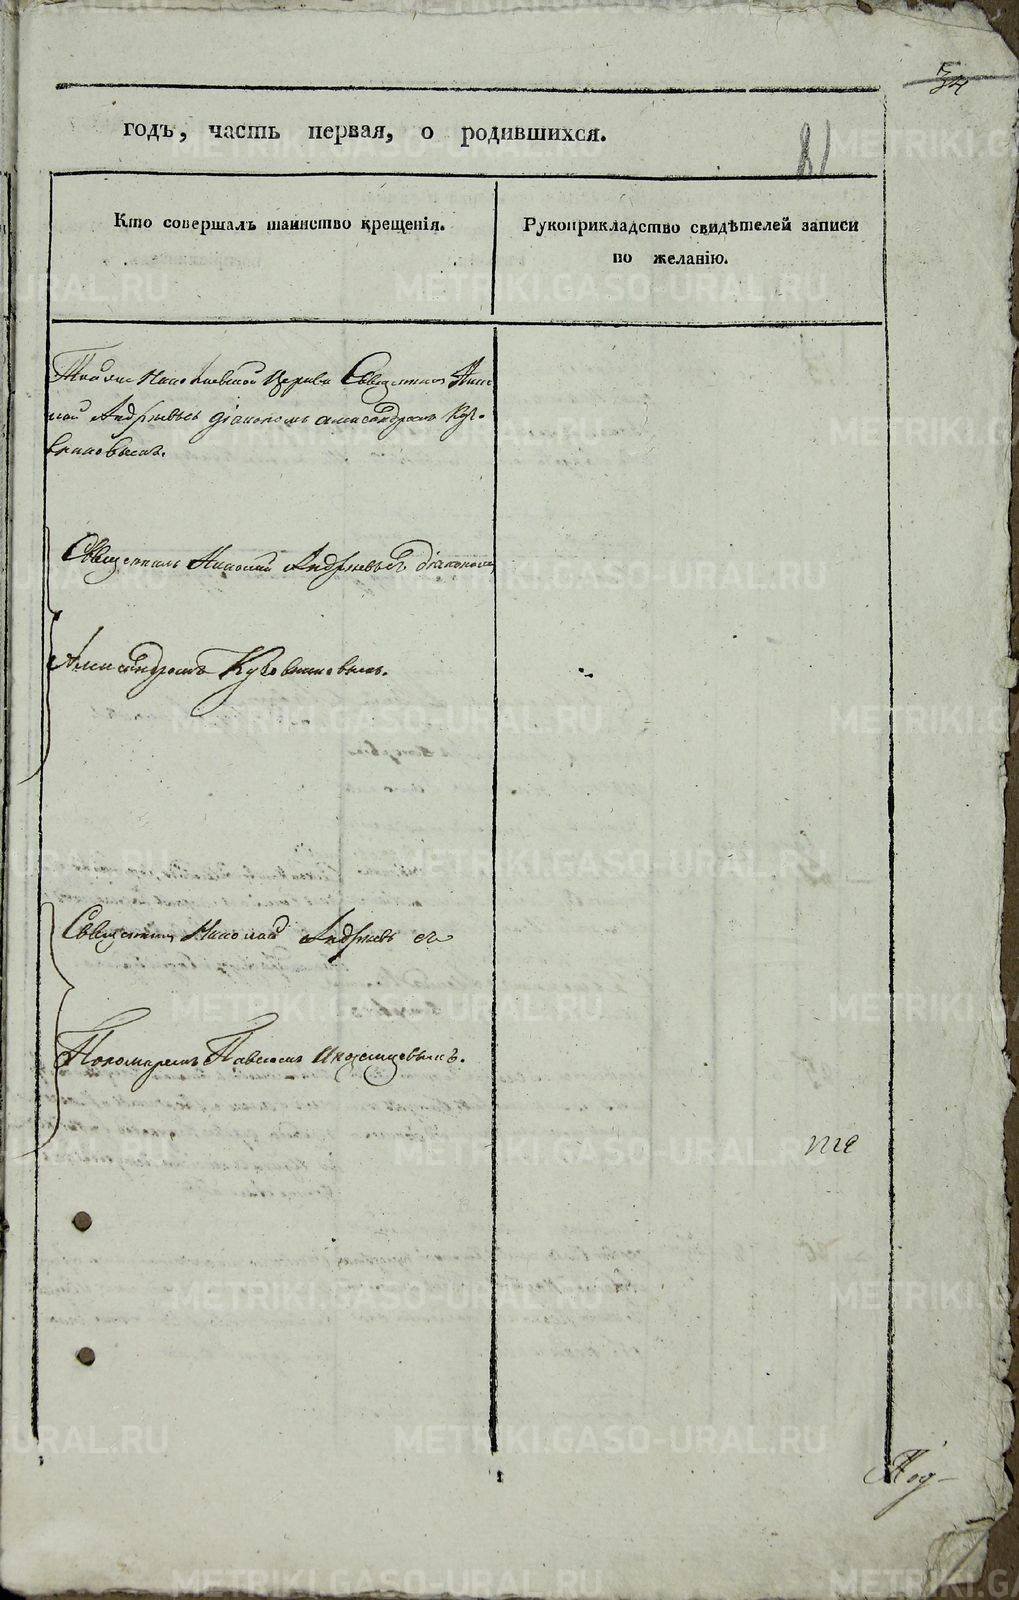 34
годъ, часть первая, о родившихся.
81
Кто совершалъ таинство крещенія.
Рукоприкладство свидѣтелей записи
по желанію.
Тойже Николаевской Церкви Священник Нико
лай Андреевъ съ діакономъ Александромъ Куз-
Священникъ Николай Андреевъ съ діакономъ
Александромъ
Священникъ Николай Андреевъ съ
Пономаремъ Павломъ Иноземцовымъ.
Под-
METRIKI.GASO-URAL.RU